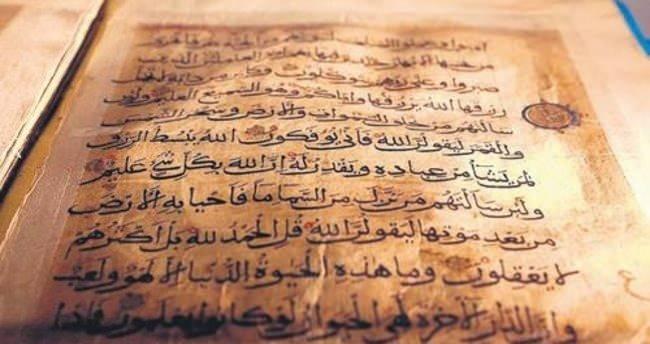 امنوا وعملوا الصلحت الجنة غرفا تجرى
من تحتها الانهار خلدين فيها نعم اجر العملين الذين
صبروا وعلى ربهم يتوكلون وكاين من دابة لا تحمل
رزقها الله يرزقها واياكم وهو السميع العليم ولئن
سالتهم من خلق السموات والارض وسخر الشمس
والقمر ليقولن الله فانى يوفكون الله يبسط الرزق
لمن يشا من عباده ويقدر له ان الله بكل شى عليم
ولئن سالتهم من نزل من السما ما فاحيا به الارض
من بعد موتها ليقولن الله قل الحمد لله بل اكثرهم
لا يعقلون وما هذه الحيوة الدنيا الا لهو ولعب
وان الدار الاخرة لهى الحيوان لو كانوا يعلمون فاذا